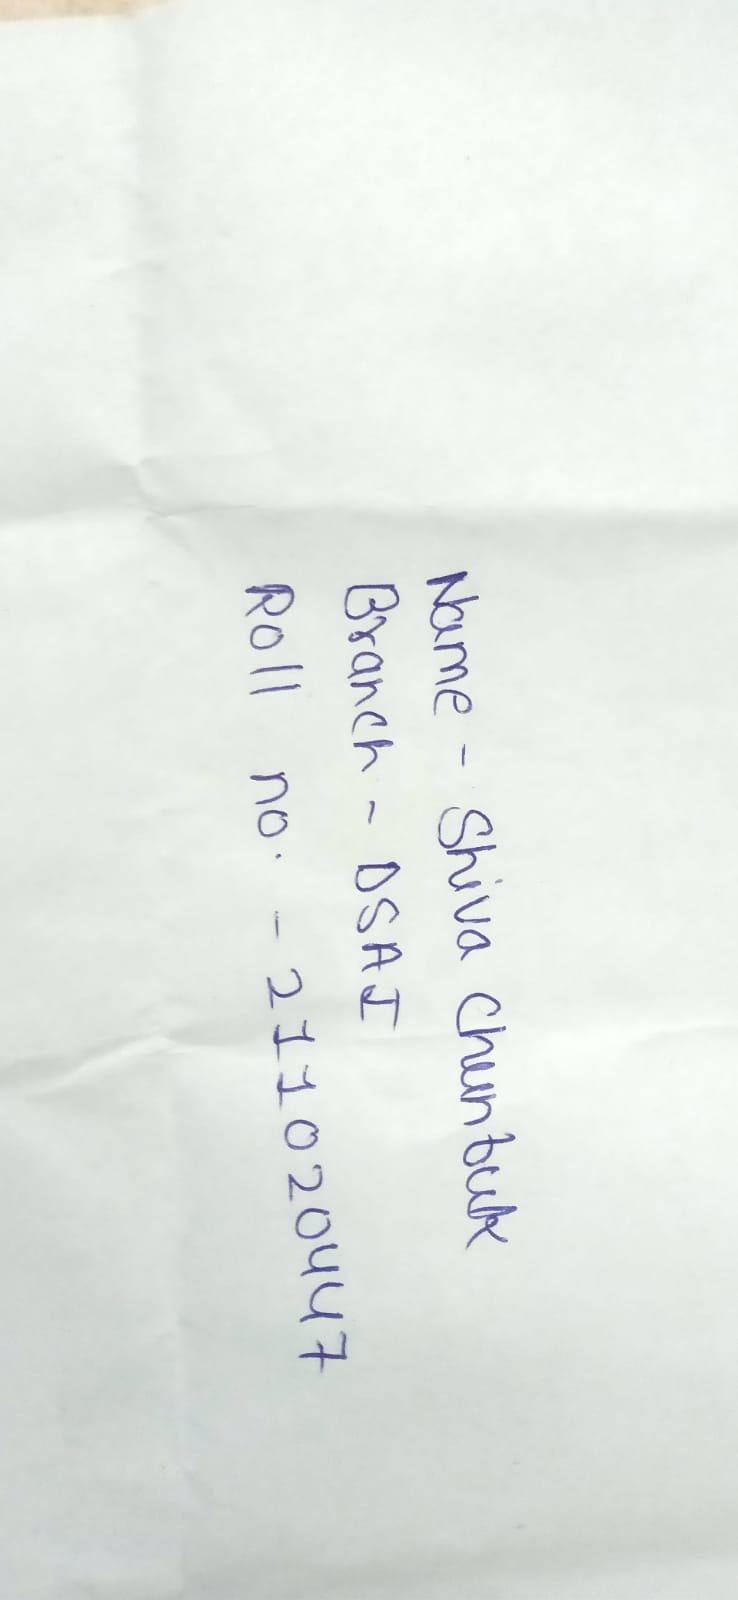 Name - Shiva Chunbuk
Branch - DSAI
Roll no. - 211020447